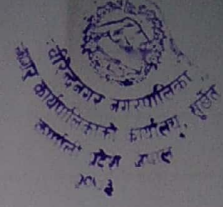 वीरेन्द्रनगर नगरपालिका
नगर कार्यपालिकाको कार्यालय, सुर्खेत
कर्णाली प्रदेश नेपाल